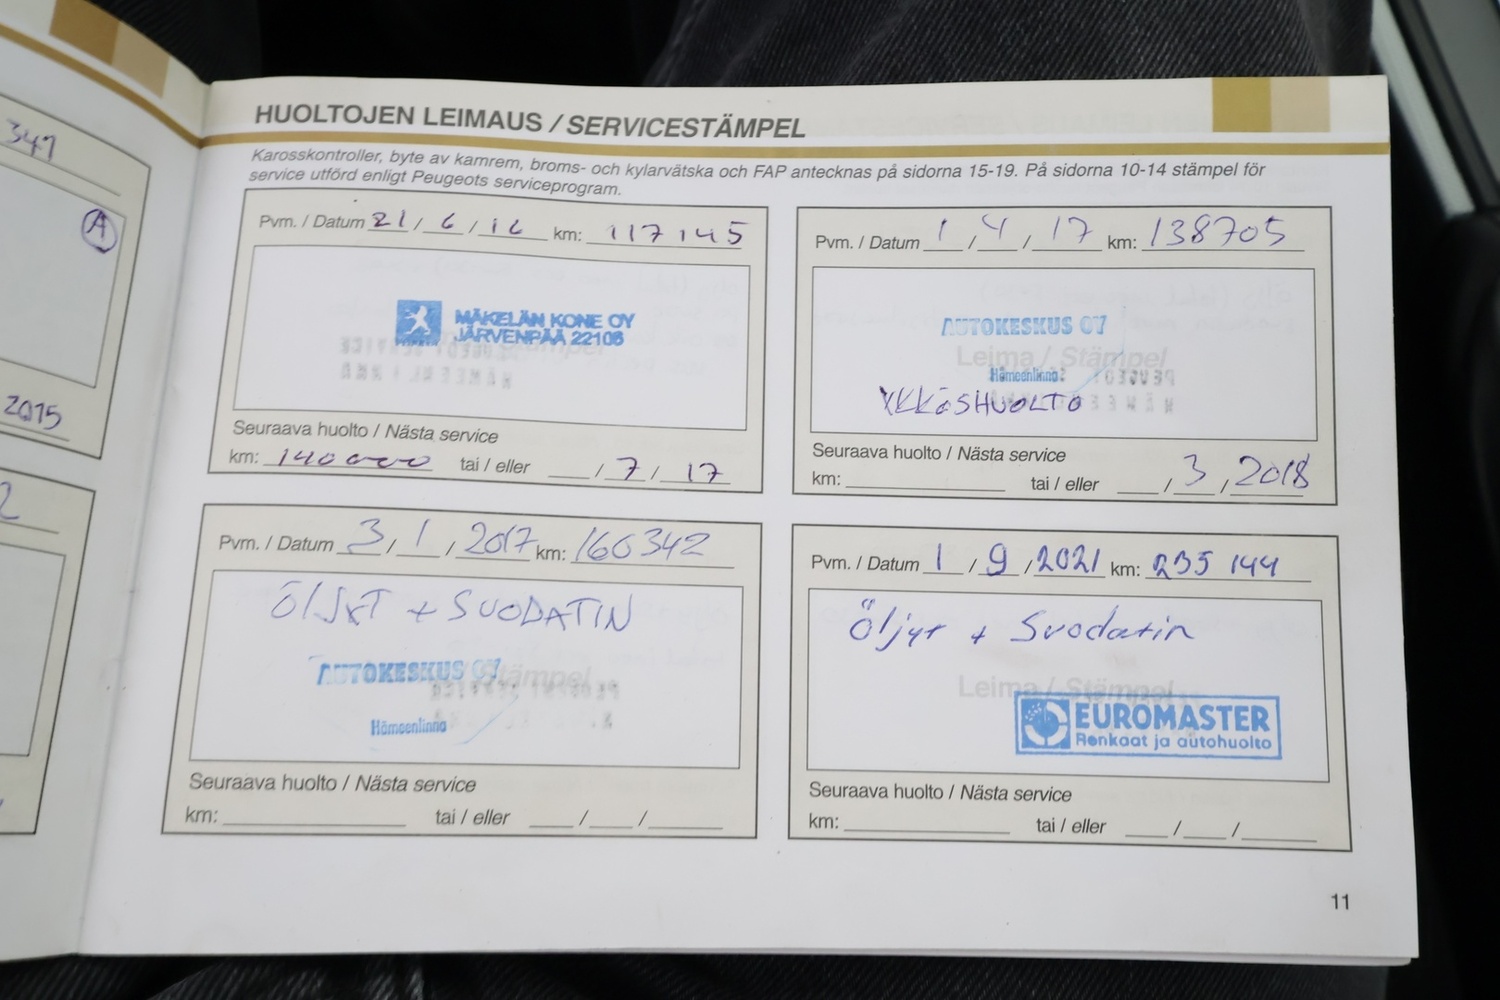 347
A
2015
2
HUOLTOJEN LEIMAUS / SERVICESTÄMPEL
Karosskontroller, byte av kamrem, broms- och kylarvätska och FAP antecknas på sidorna 15-19. På sidorna 10-14 stämpel för
service utförd enligt Peugeots serviceprogram.
Pvm. / Datum 21 / 6 / 16 km: 117145
MÄKELÄN KONE OY
JÄRVENPÄÄ 22106
Seuraava huolto / Nästa service
km: 140000 tai / eller / 7 / 17
Pvm. / Datum 1 / 4 / 17 km: 138705
AUTOKESKUS OY
Leima / Stämpel
Hämeenlinna
YKKÖSHUOLTO
Seuraava huolto / Nästa service
km: tai / eller / 3 / 2018
Pvm. / Datum 3 / 1 / 2017 km: 160342
ÖLJYT + SUODATIN
AUTOKESKUS OY
Stämpel
Hämeenlinna
Seuraava huolto / Nästa service
km: tai / eller / /
Pvm. / Datum 1 / 9 / 2021 km: 235 144
Öljyt + Suodatin
Leima / Stämpel
EUROMASTER
Renkaat ja autohuolto
Seuraava huolto / Nästa service
km: tai / eller / /
11